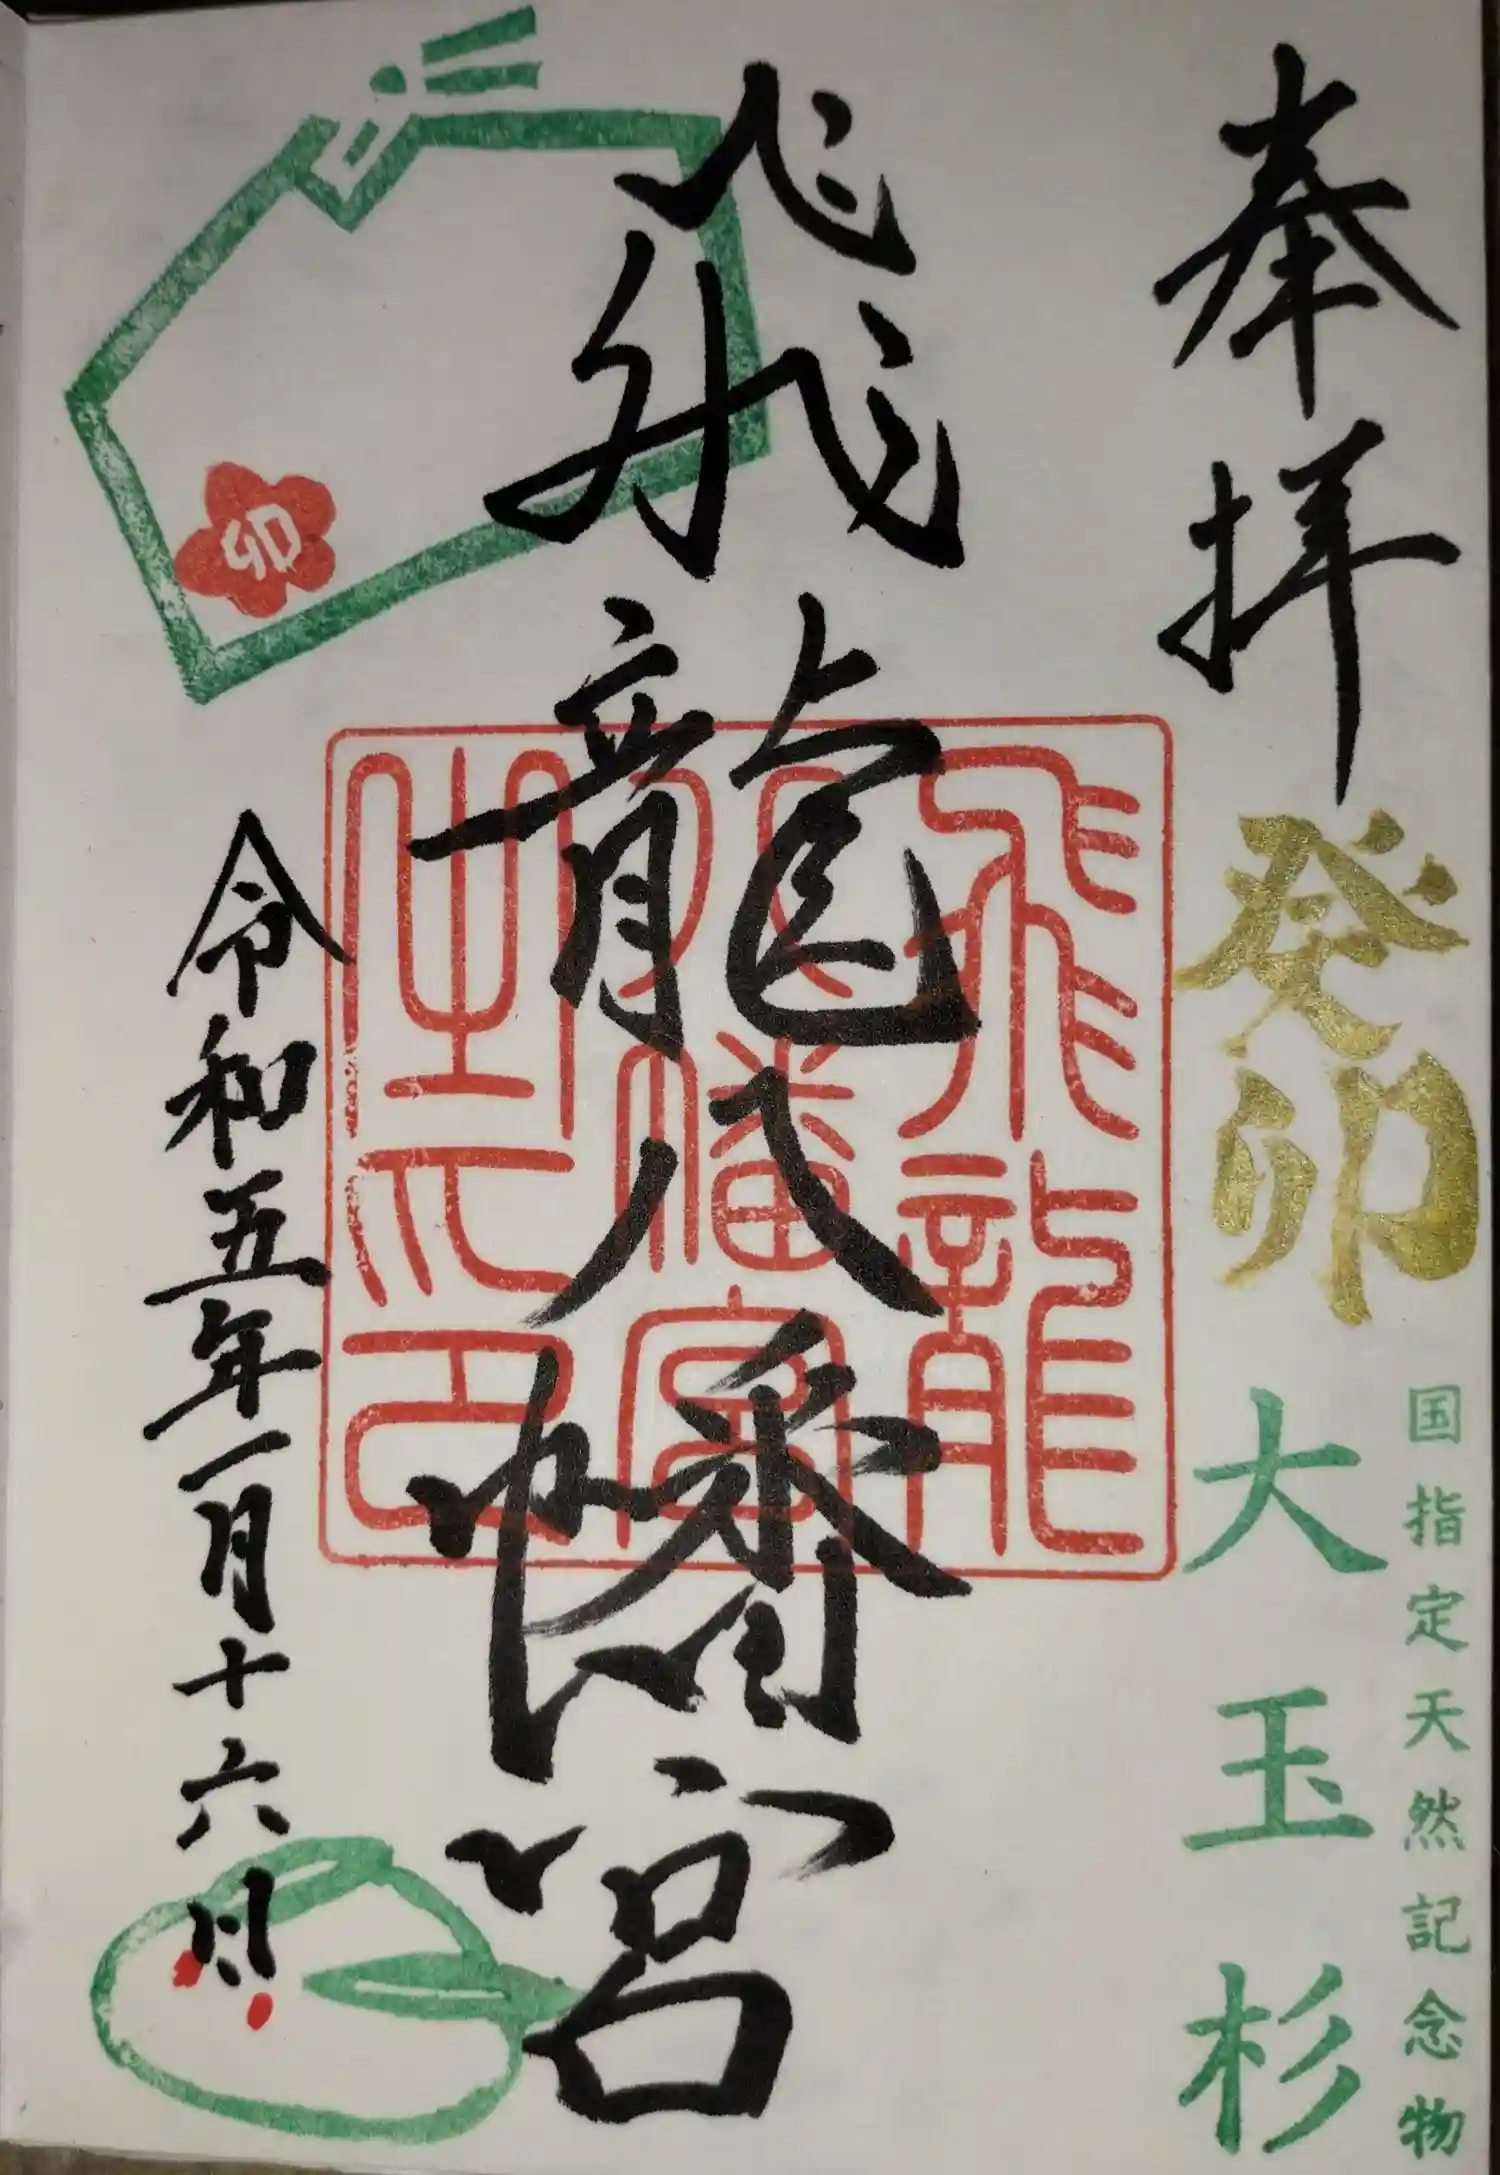 奉拝
癸卯
国指定天然記念物
大玉杉
飛龍八幡宮
飛龍
八幡宮
之印
卯
令和五年一月十六日